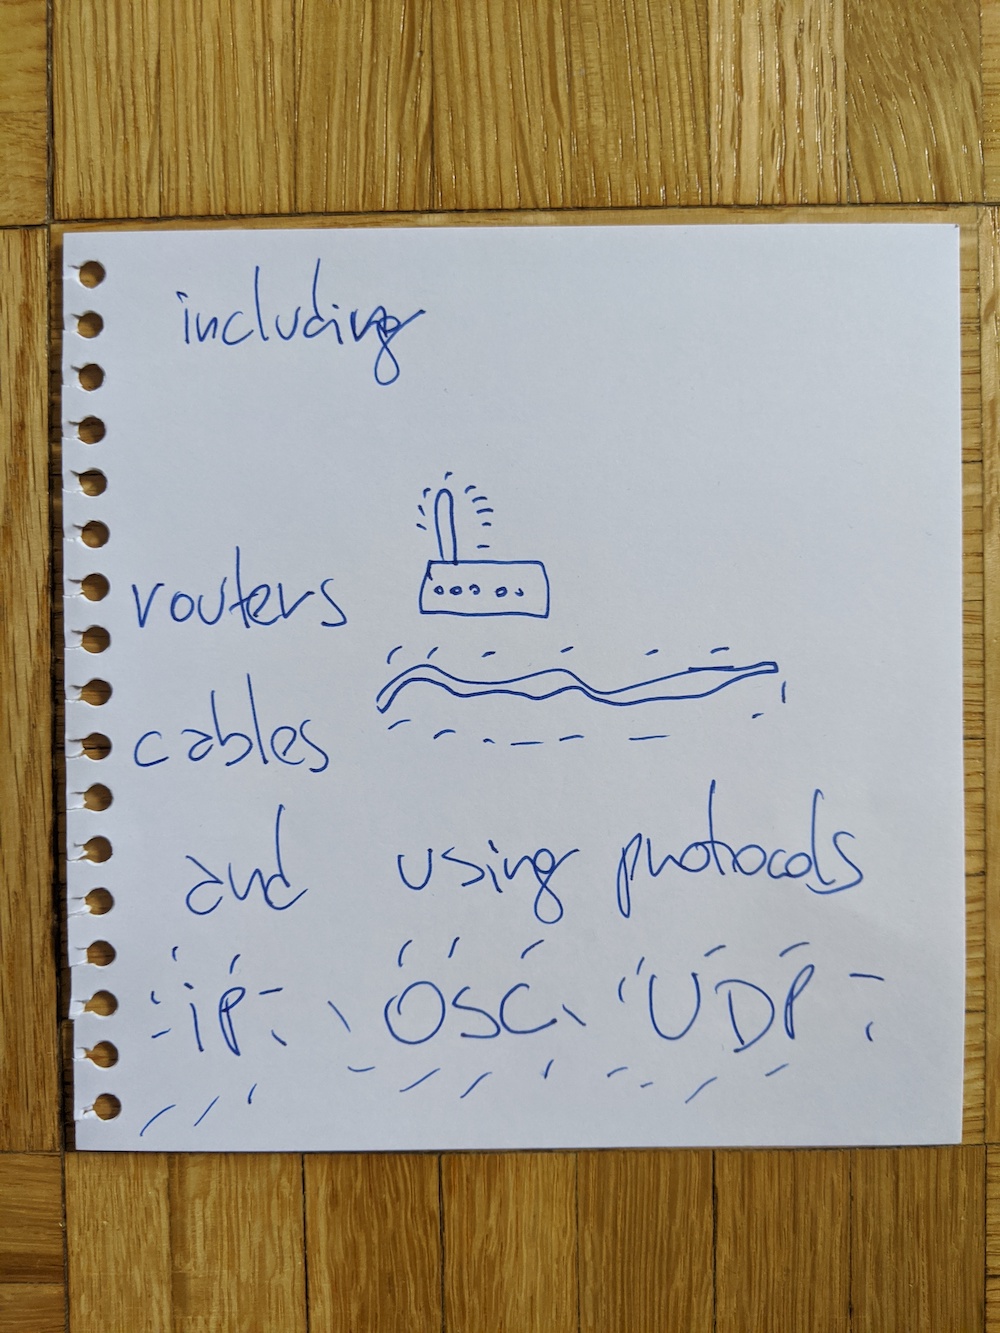 including
routers
cables
and using protocols
iP OSC UDP